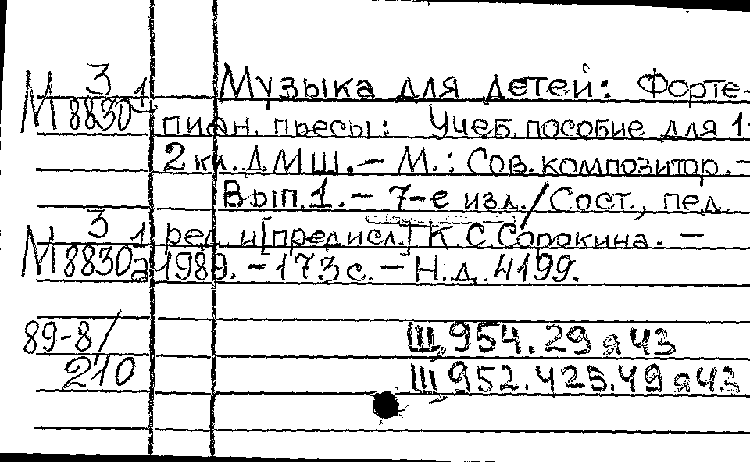 М 3 Музыка для детей: Форте-
8830-1 пиан. пьесы: Учеб. пособие для 1-
2 кл. ДМШ. – М.: Сов. композитор. –
Вып. 1. – 7-е изд./Сост., пед.
М 3 1 ред. и [предисл.] К.С. Сорокина. –
8830а 1989. – 173 с. – Н.д. 4199.
89-8/ Щ 954.29 я 43
210 Щ 952.423.49 я 43